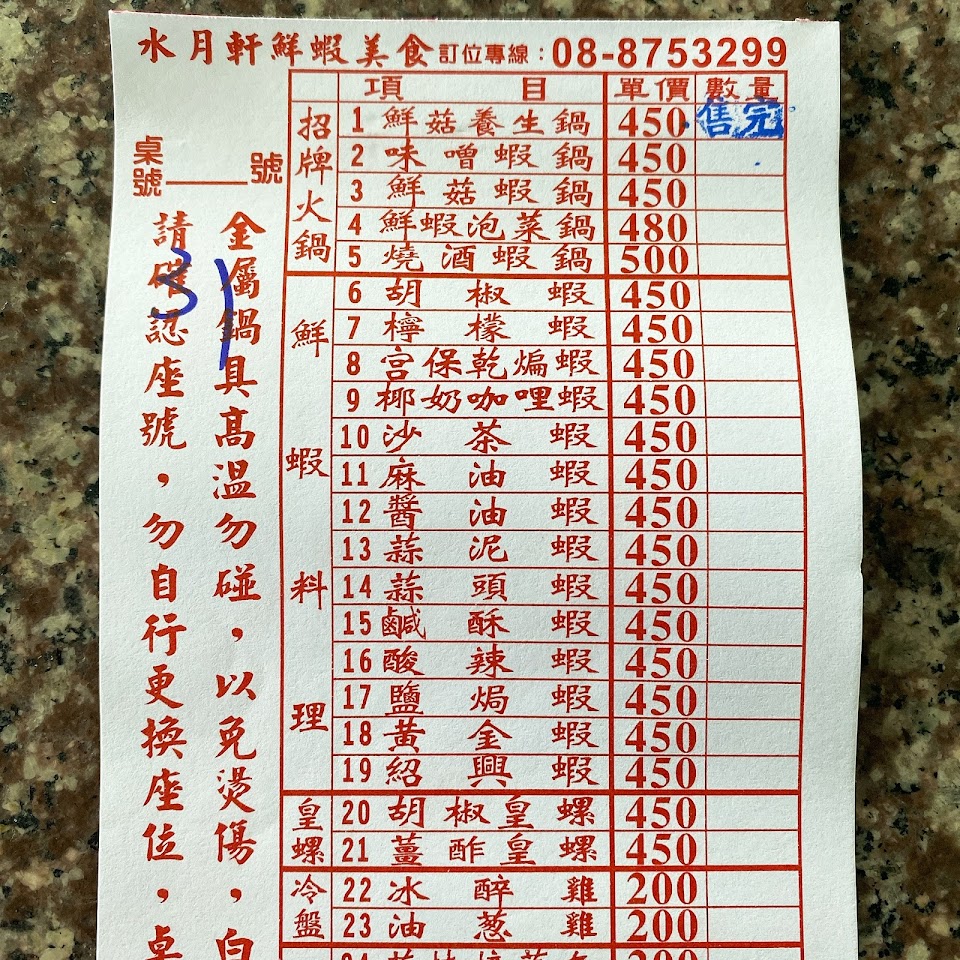 水月軒鮮蝦美食 訂位專線：08-8753299
桌號____號
31
金屬鍋具高溫勿碰，以免燙傷，白
請確認座號，勿自行更換座位，桌
項目 單價 數量
招牌火鍋
1 鮮菇養生鍋 450 售完
2 味噌蝦鍋 450
3 鮮菇蝦鍋 450
4 鮮蝦泡菜鍋 480
5 燒酒蝦鍋 500
鮮蝦料理
6 胡椒蝦 450
7 檸檬蝦 450
8 宮保乾煸蝦 450
9 椰奶咖哩蝦 450
10 沙茶蝦 450
11 麻油蝦 450
12 醬油蝦 450
13 蒜泥蝦 450
14 蒜頭蝦 450
15 鹹酥蝦 450
16 酸辣蝦 450
17 鹽焗蝦 450
18 黃金蝦 450
19 紹興蝦 450
皇螺
20 胡椒皇螺 450
21 薑酢皇螺 450
冷盤
22 冰醉雞 200
23 油葱雞 200